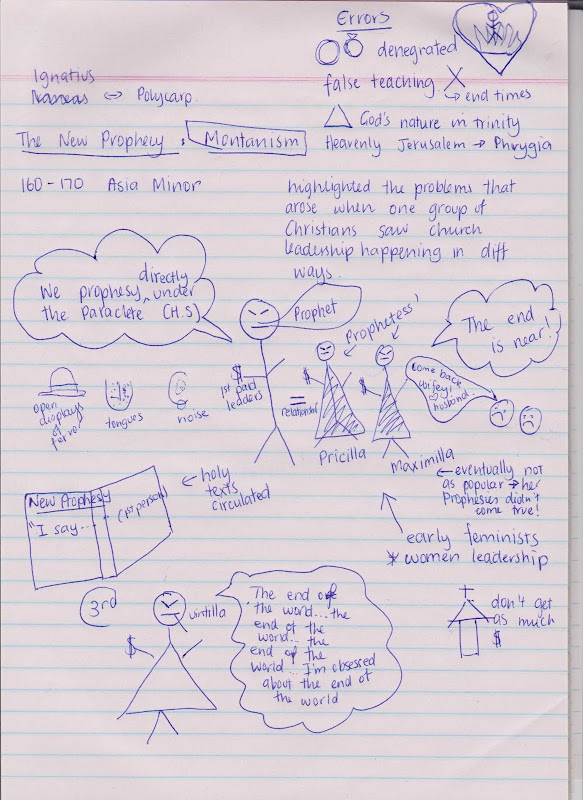 Errors
denegrated
false teaching
↳ end times
God's nature in Trinity
Heavenly Jerusalem → Phrygia
Ignatius
↔ Polycarp.
The New Prophecy, Montanism
160-170 Asia Minor
highlighted the problems that
arose when one group of
Christians saw Church
leadership happening in diff
ways.
directly
We prophesy ^ under
the Paraclete (H.S)
Prophet
Prophetess'
The end
is near!
open
displays
of fervor
tongues
noise
$
1st paid
leaders
=
relationship
$
$
come back
wifey!
husband.
Pricilla
Maximilla
← eventually not
as popular → her
Prophesies didn't
come true!
early feminists
* women leadership
New Prophesy
"I say...
(1st person)
← holy
texts
circulated
3rd
$
The end of
the world... the
end of the
world... the
end of the
world... I'm obsessed
about the end of
the world
don't get
as much
$